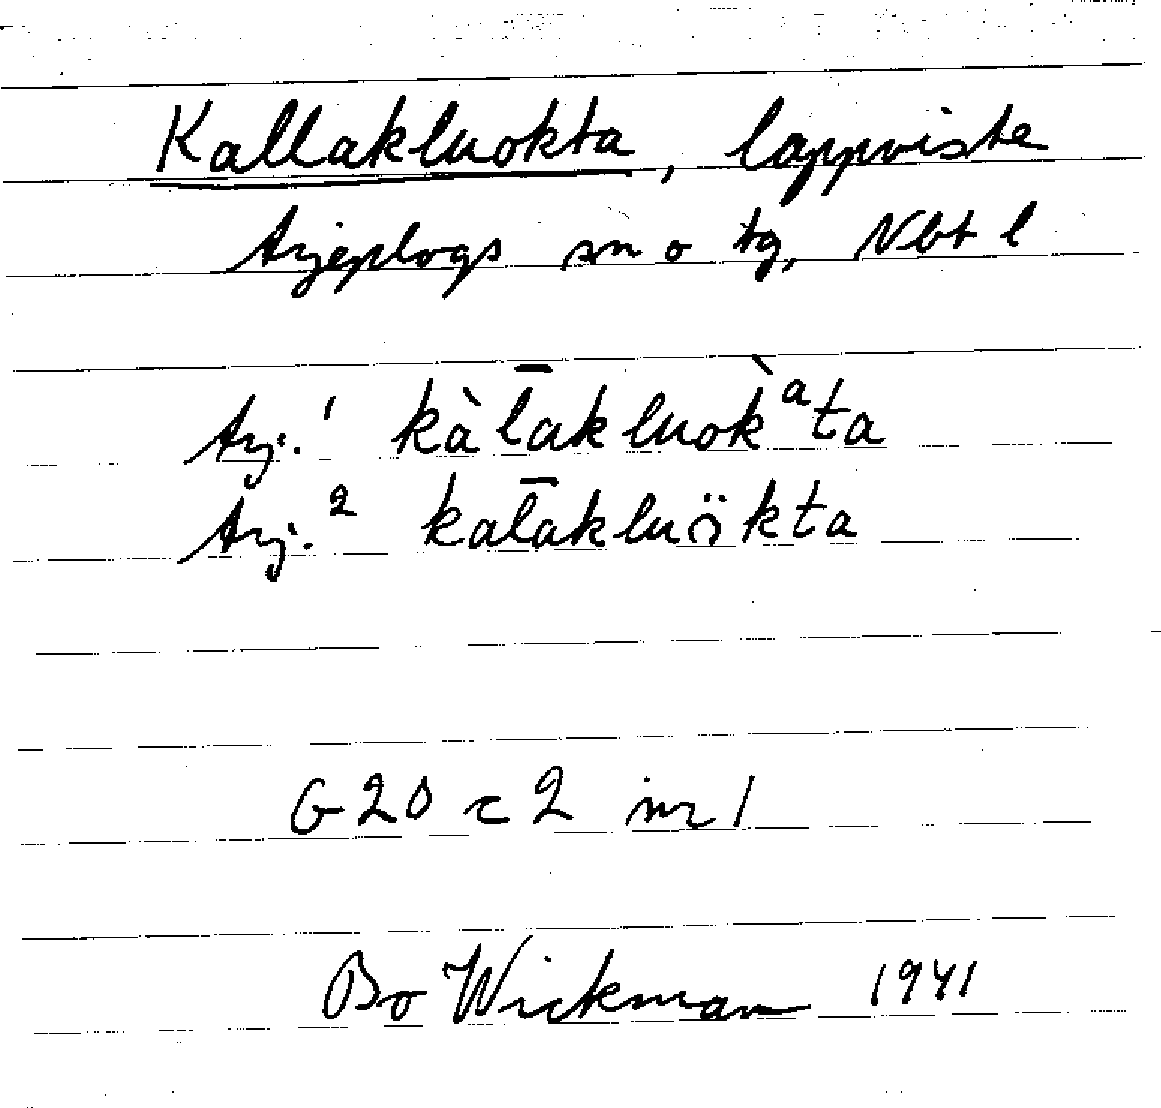 Kallakluokta, lappviste
Arjeplogs sn o tg, Nbt l
Arj.¹ kàl̄akluok̀ᵃta
Arj.² kal̄akluö̯kta
G 20 c 2 nr 1
Bo Wickman 1941